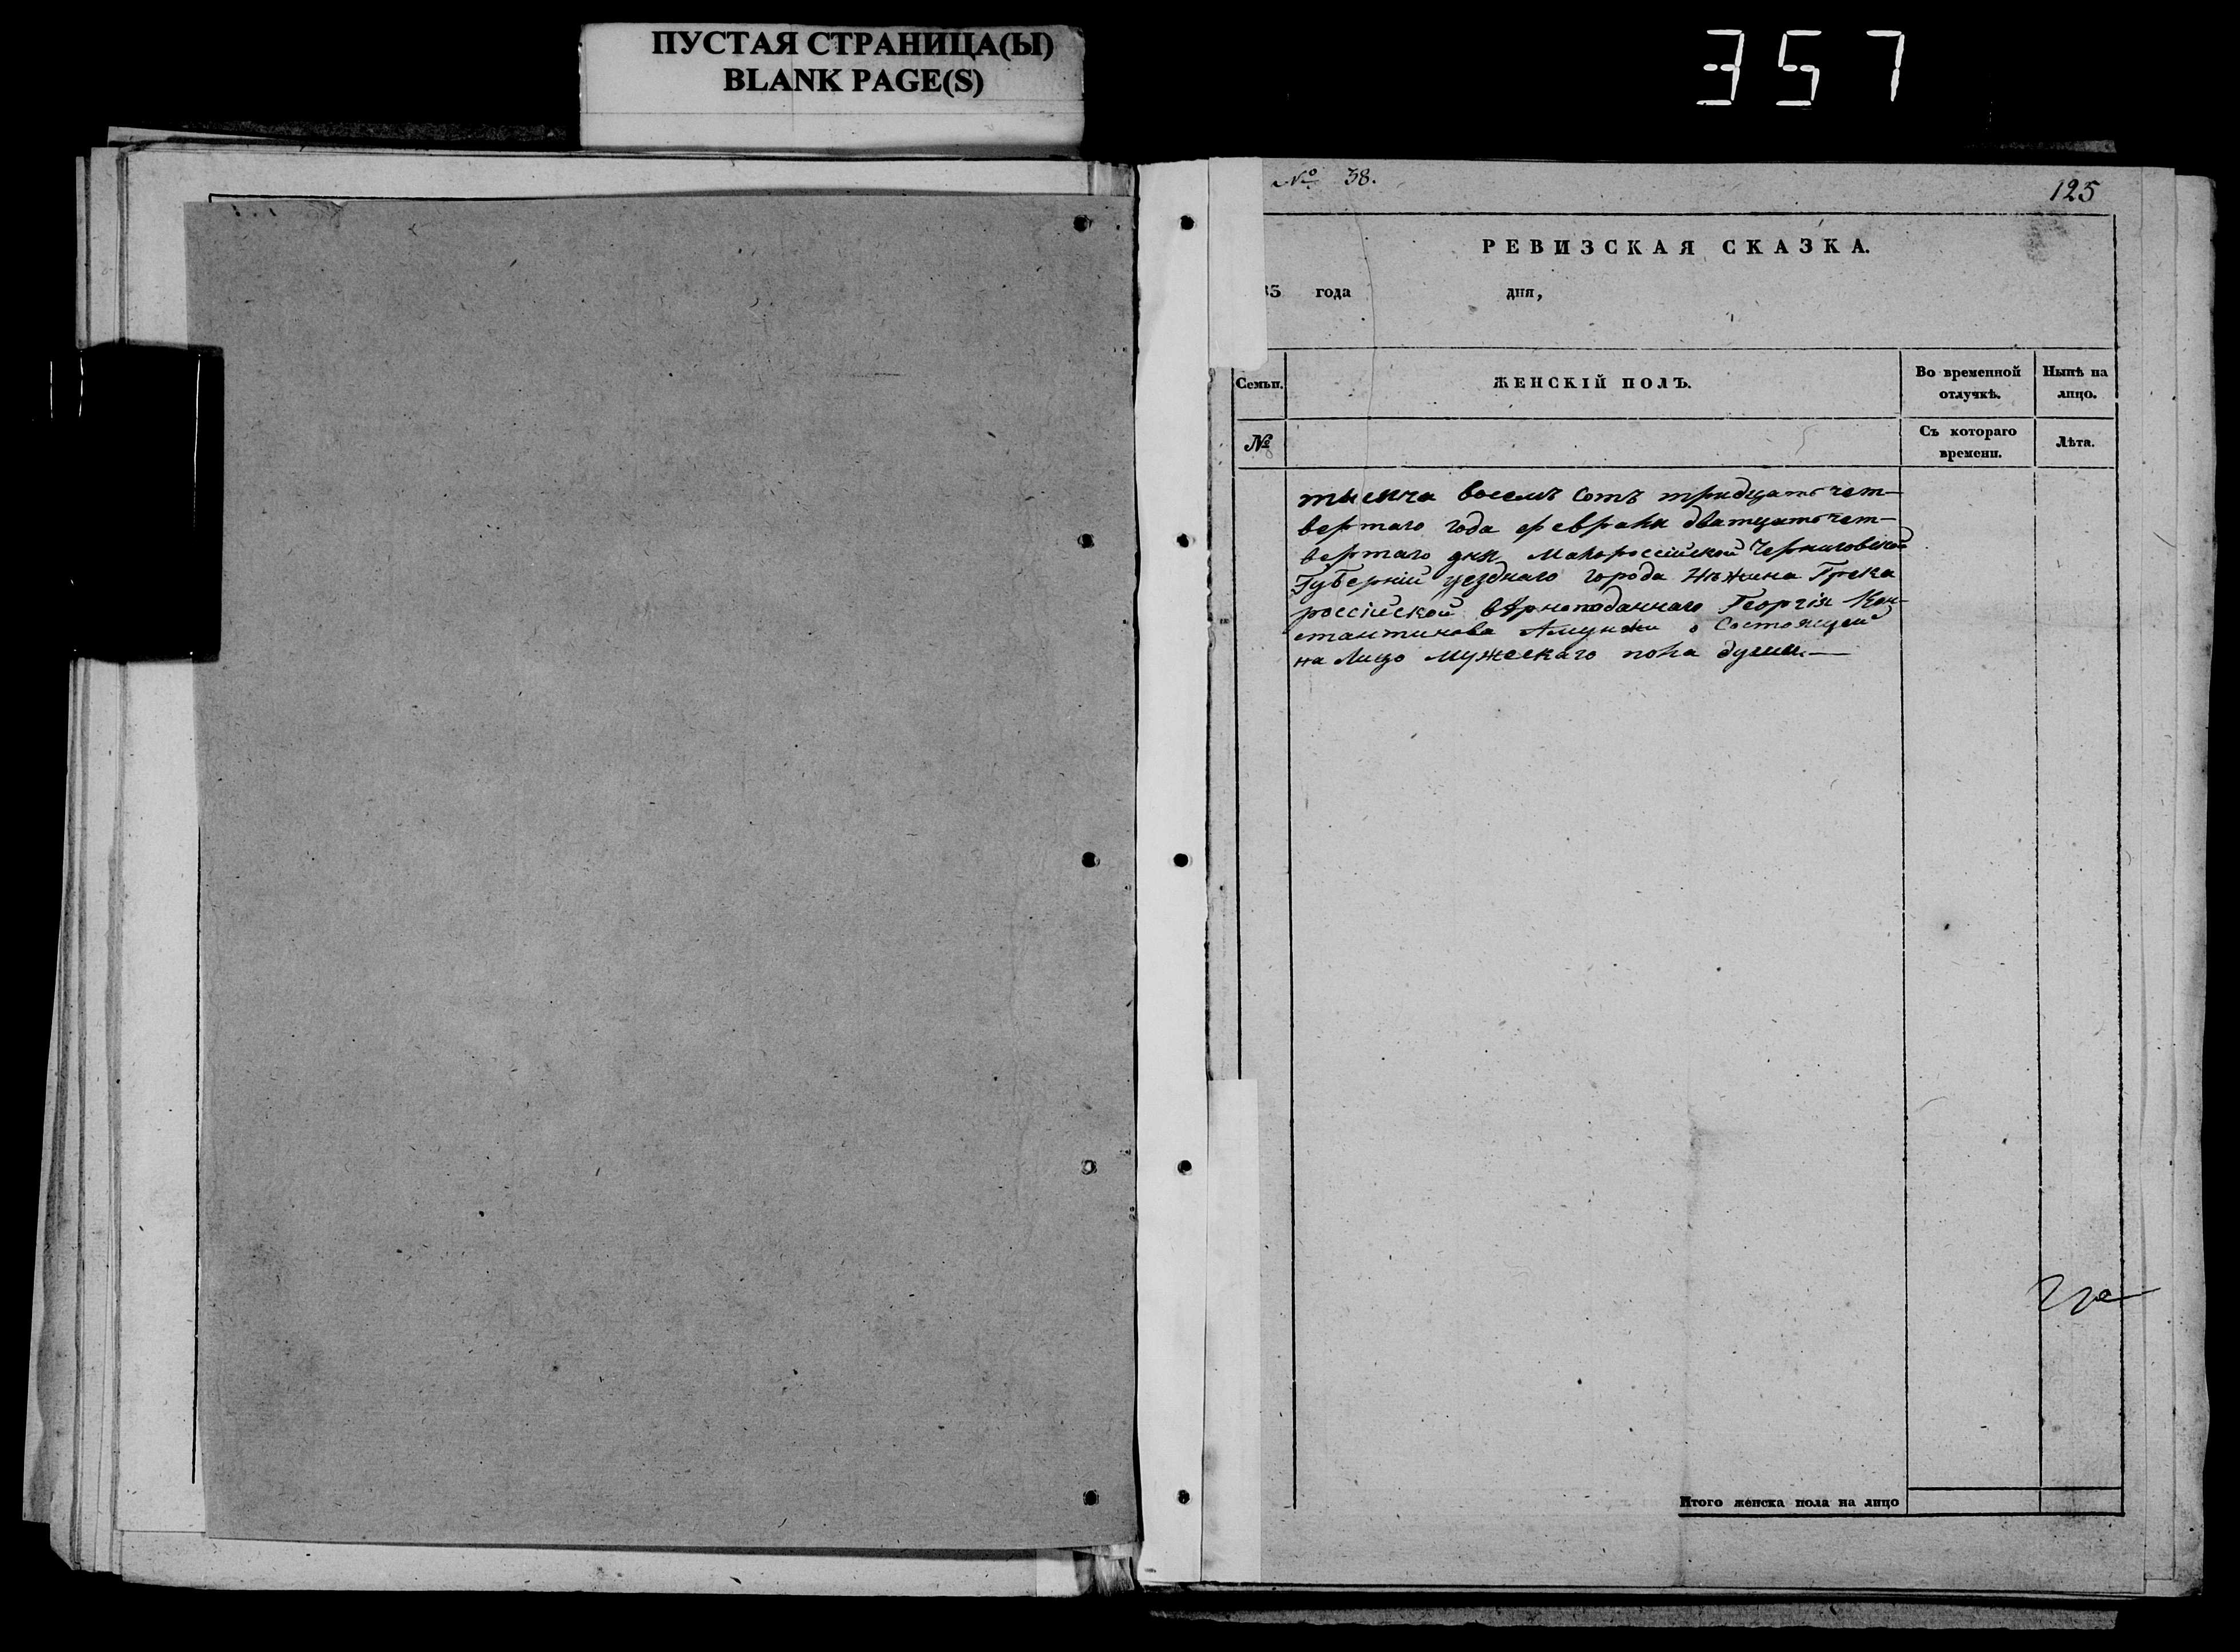 ПУСТАЯ СТРАНИЦА(Ы)
BLANK PAGE(S)
357
№ 38.
125
РЕВИЗСКАЯ СКАЗКА.
35 года дня,
Семьи.
ЖЕНСКІЙ ПОЛЪ.
Во временной отлучкѣ.
Нынѣ на лицо.
№
Съ котораго времени.
Лѣта.
тысяча восемъ сотъ тридцать чет-
вертаго года февраля дватцать чет-
вертаго дня, Малороссійской Черниговской
Губерніи уезднаго города Нѣжина Грека
россійской вѣрноподаннаго Георгія Кон-
стантинова о Состоящей
на Лицо мужескаго пола души.—
Итого женска пола на лицо